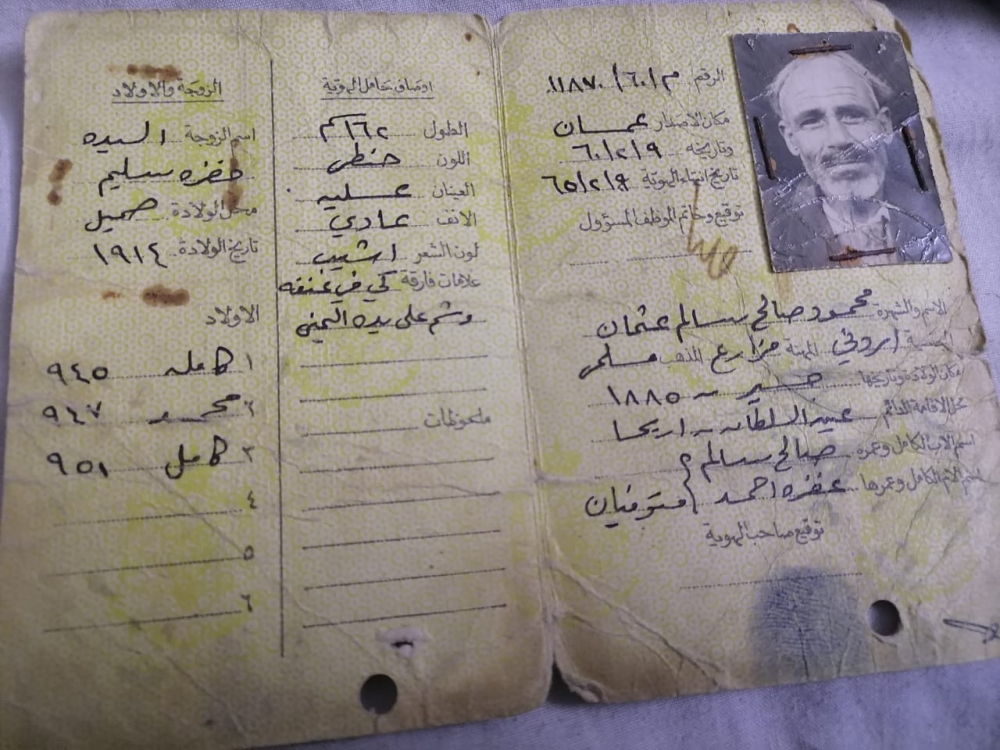 الرقم م/٦٠/١١٨٧٠
مكان الاصدار عمان
وتاريخه ٦٠/٢/٩
تاريخ انتهاء الهوية ٦٥/٢/٩
توقيع وخاتم الموظف المسؤول
الاسم والشهرة محمود صالح سالم عثمان
اردني المهنة مزارع المذهب مسلم
مكان الولادة وتاريخها ١٨٨٥
محل الاقامة الدائم عين السلطان اريحا
اسم الاب الكامل وعمره صالح سالم
اسم الام الكامل وعمرها احمد متوفيان
توقيع صاحب الهوية
اوصاف حامل الهوية
الطول ١٦٢ كم
اللون حنطي
العينان عسليه
الانف عادي
لون الشعر اشيب
علامات فارقة كي في عنقه
وشم على يده اليمنى
ملحوظات
الزوجة والاولاد
اسم الزوجة السيده
خضره سليم
محل الولادة صميل
تاريخ الولادة ١٩١٤
الاولاد
١ كامله ٩٤٥
٢ محمد ٩٤٧
٣ كامل ٩٥١
٤
٥
٦